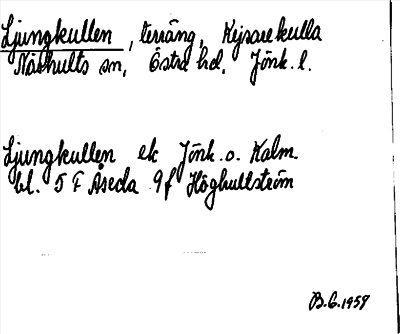 Ljungkullen, terräng, Kejsarekulla
Näshults sn, Östra hd, Jönk. l.
Ljungkullen ek Jönk. o. Kalm.
bl. 5 F Åseda 9f Höghultström
B.G. 1959